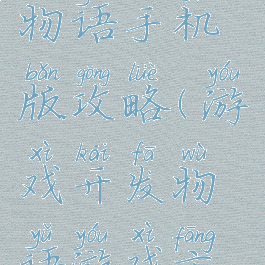 物语手机
bǎn gōng lüè yóu
版攻略(游
xì kāi fā wù
戏开发物
yǔ yóu xì fāng
语游戏方